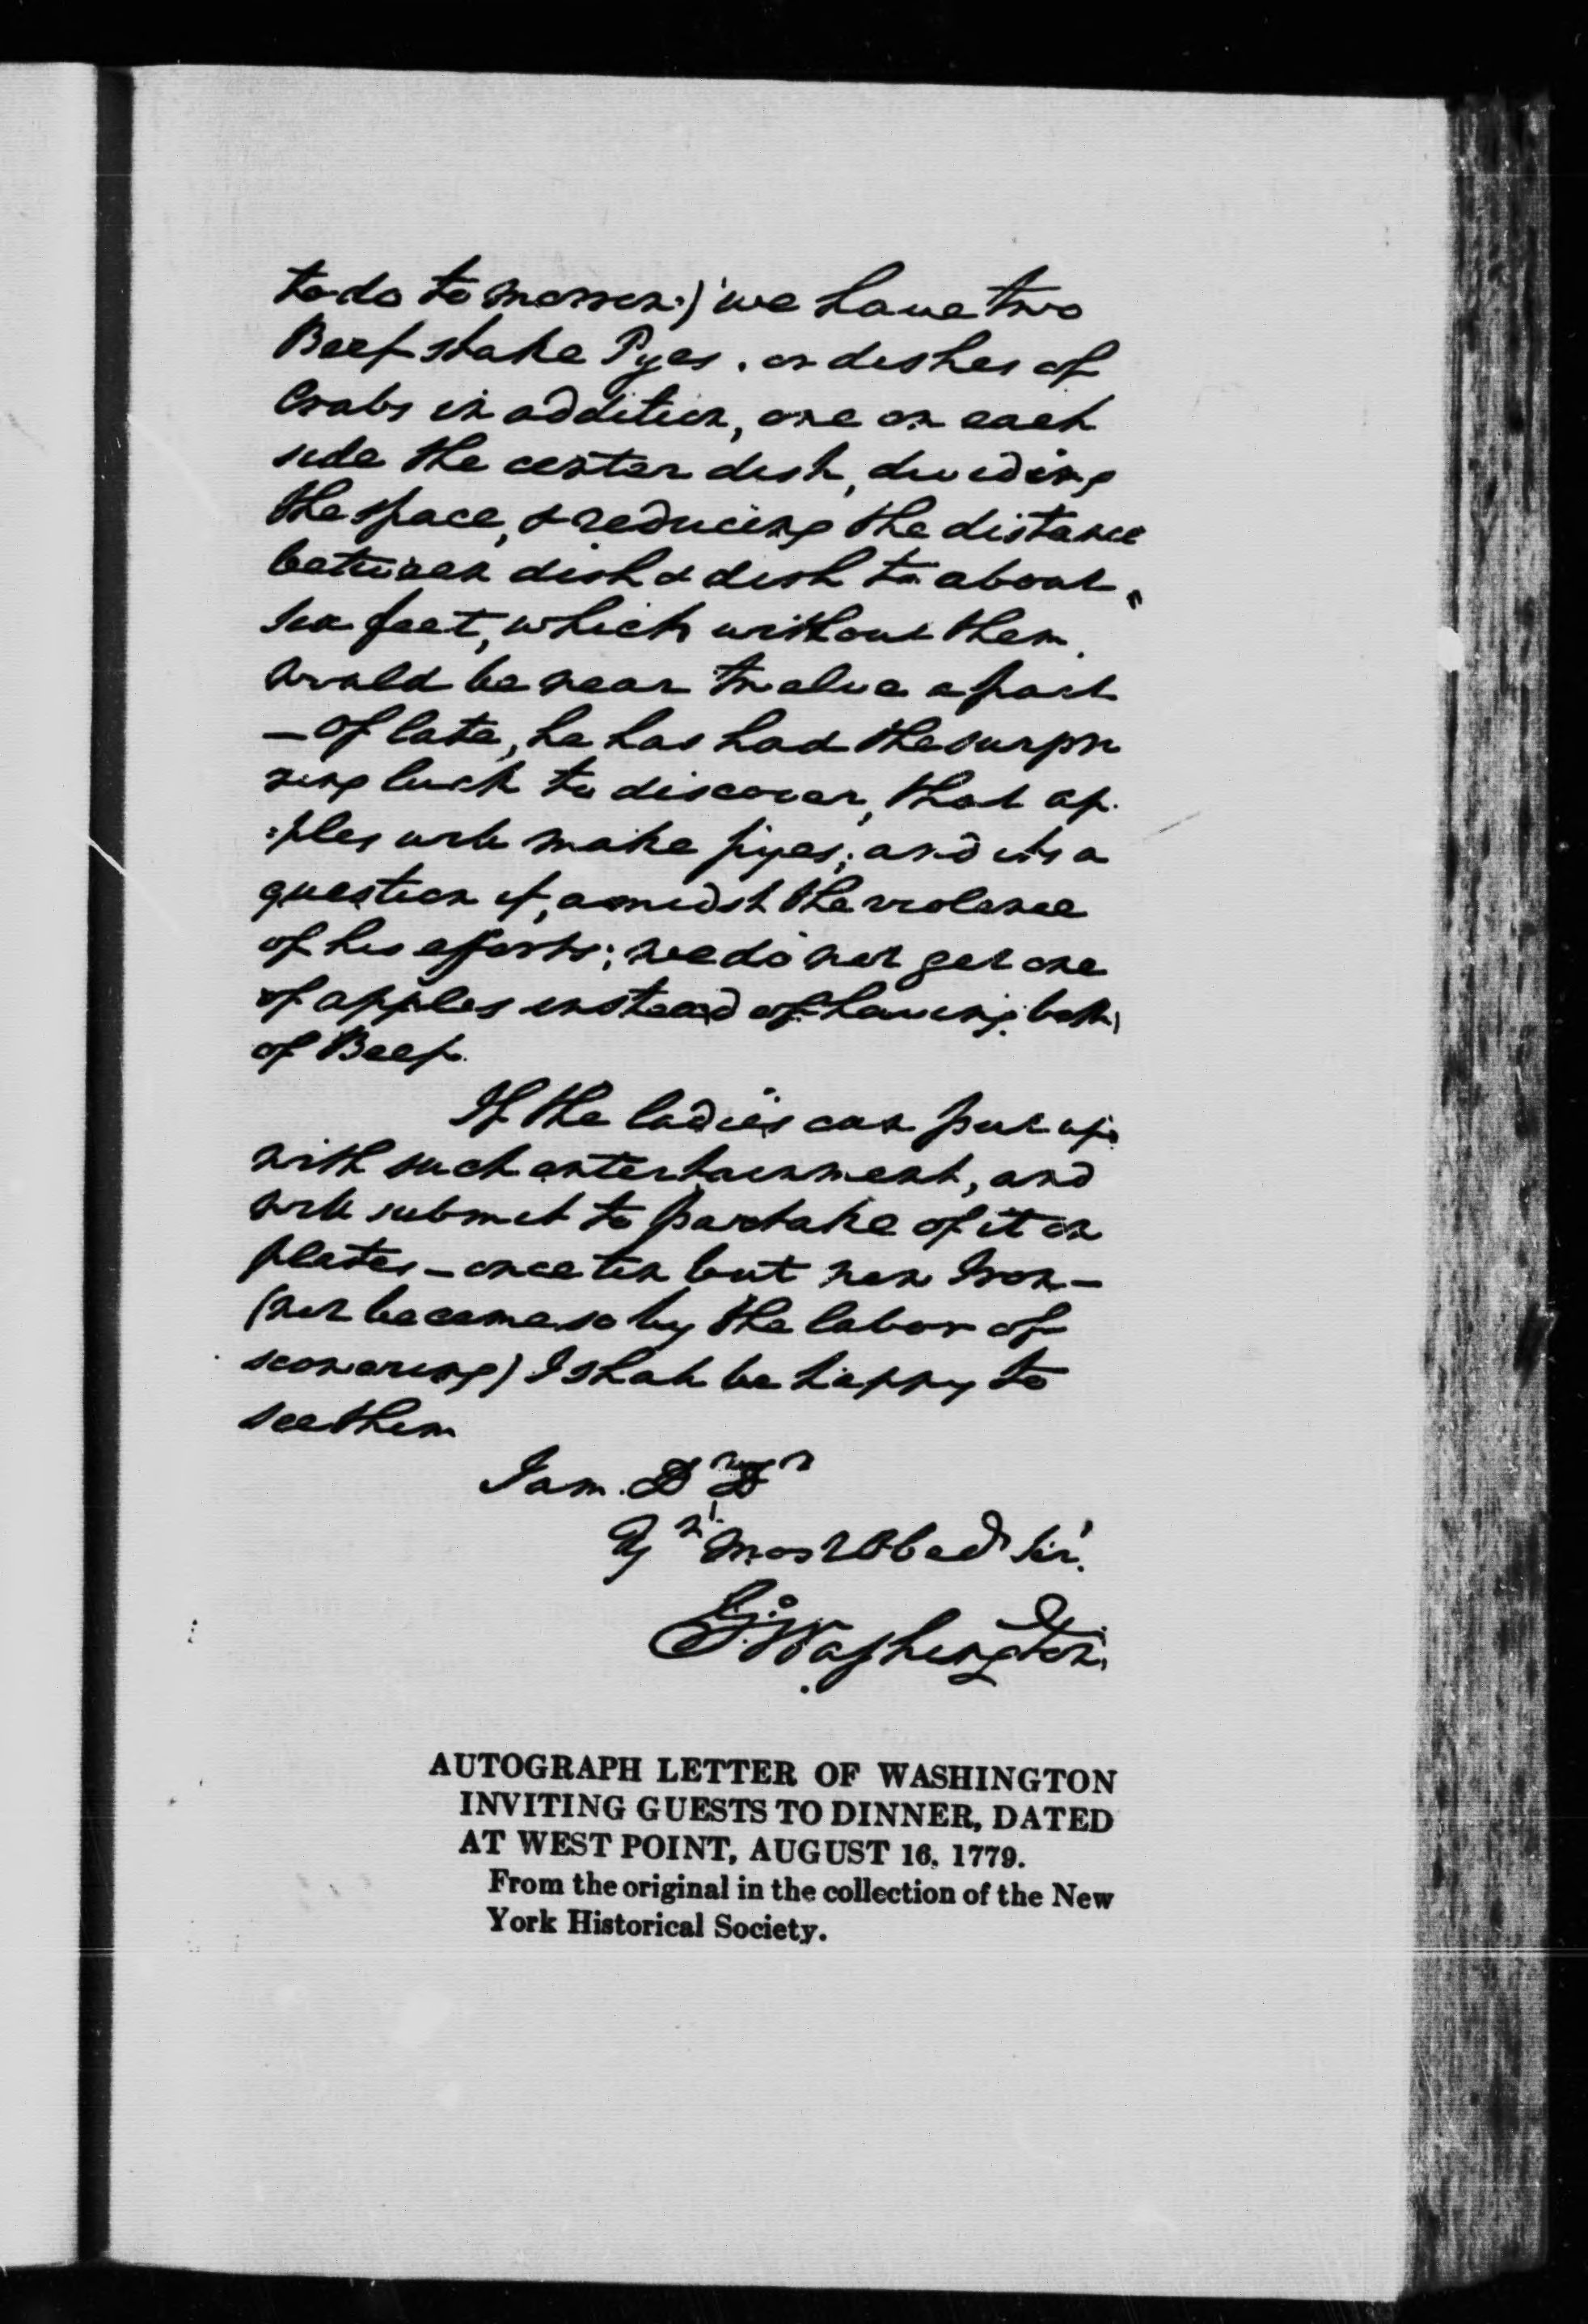 to do to morrow.) we have two
Beef stake Pyes, or dishes of
Crabs in addition, one on each
side the center dish, dividing
the space, & reducing the distance
between dish & dish to about
six feet, which without them
would be near twelve apart
— Of late, he has had the surpri
sing luck to discover, that ap-
:ples will make pyes; and its a
question if, amidst the violence
of his efforts; we do not get one
of apples instead of having both
of Beef.
If the ladies can put up
with such entertainment, and
will submit to partake of it on
plates — once tin but now Iron —
(not become so by the labor of
scowering) I shall be happy to
see them
I am. Dr Dr
Yr most Obed Sr.
Go: Washington
AUTOGRAPH LETTER OF WASHINGTON
INVITING GUESTS TO DINNER, DATED
AT WEST POINT, AUGUST 16, 1779.
From the original in the collection of the New
York Historical Society.